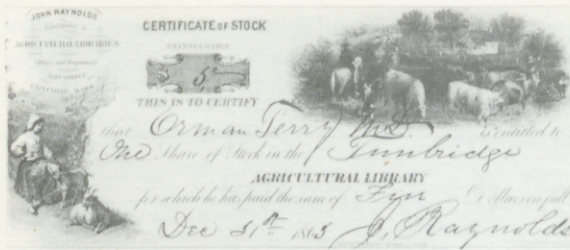 JOHN RAYNOLDS
AGRICULTURAL LIBRARIES
CERTIFICATE OF STOCK
TRANSFERABLE
$ 5
THIS IS TO CERTIFY
that Orman Terry M.D. is entitled to
One Share of Stock in the Tunbridge
AGRICULTURAL LIBRARY
for which he has paid the sum of Dollars in full
Dec 31st 1863 J. Raynolds